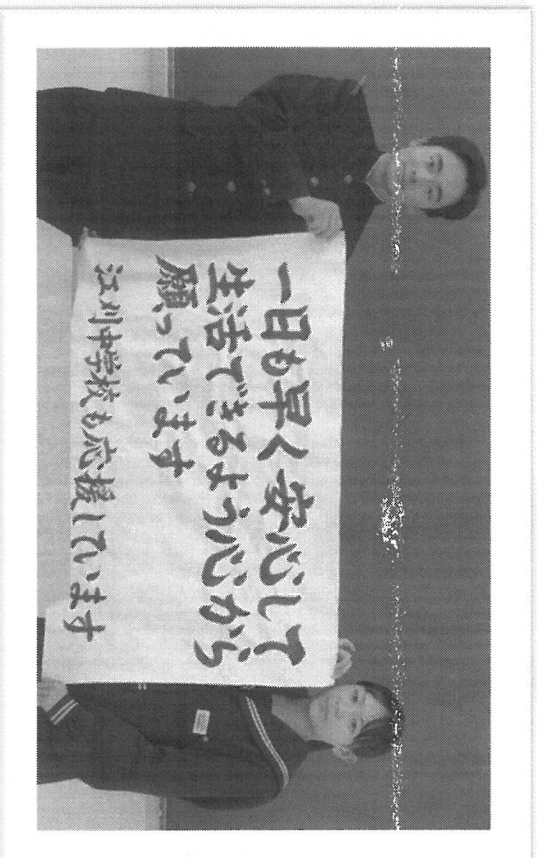 一日も早く安心して
生活できるよう心から
願っています
江刈中学校も応援しています